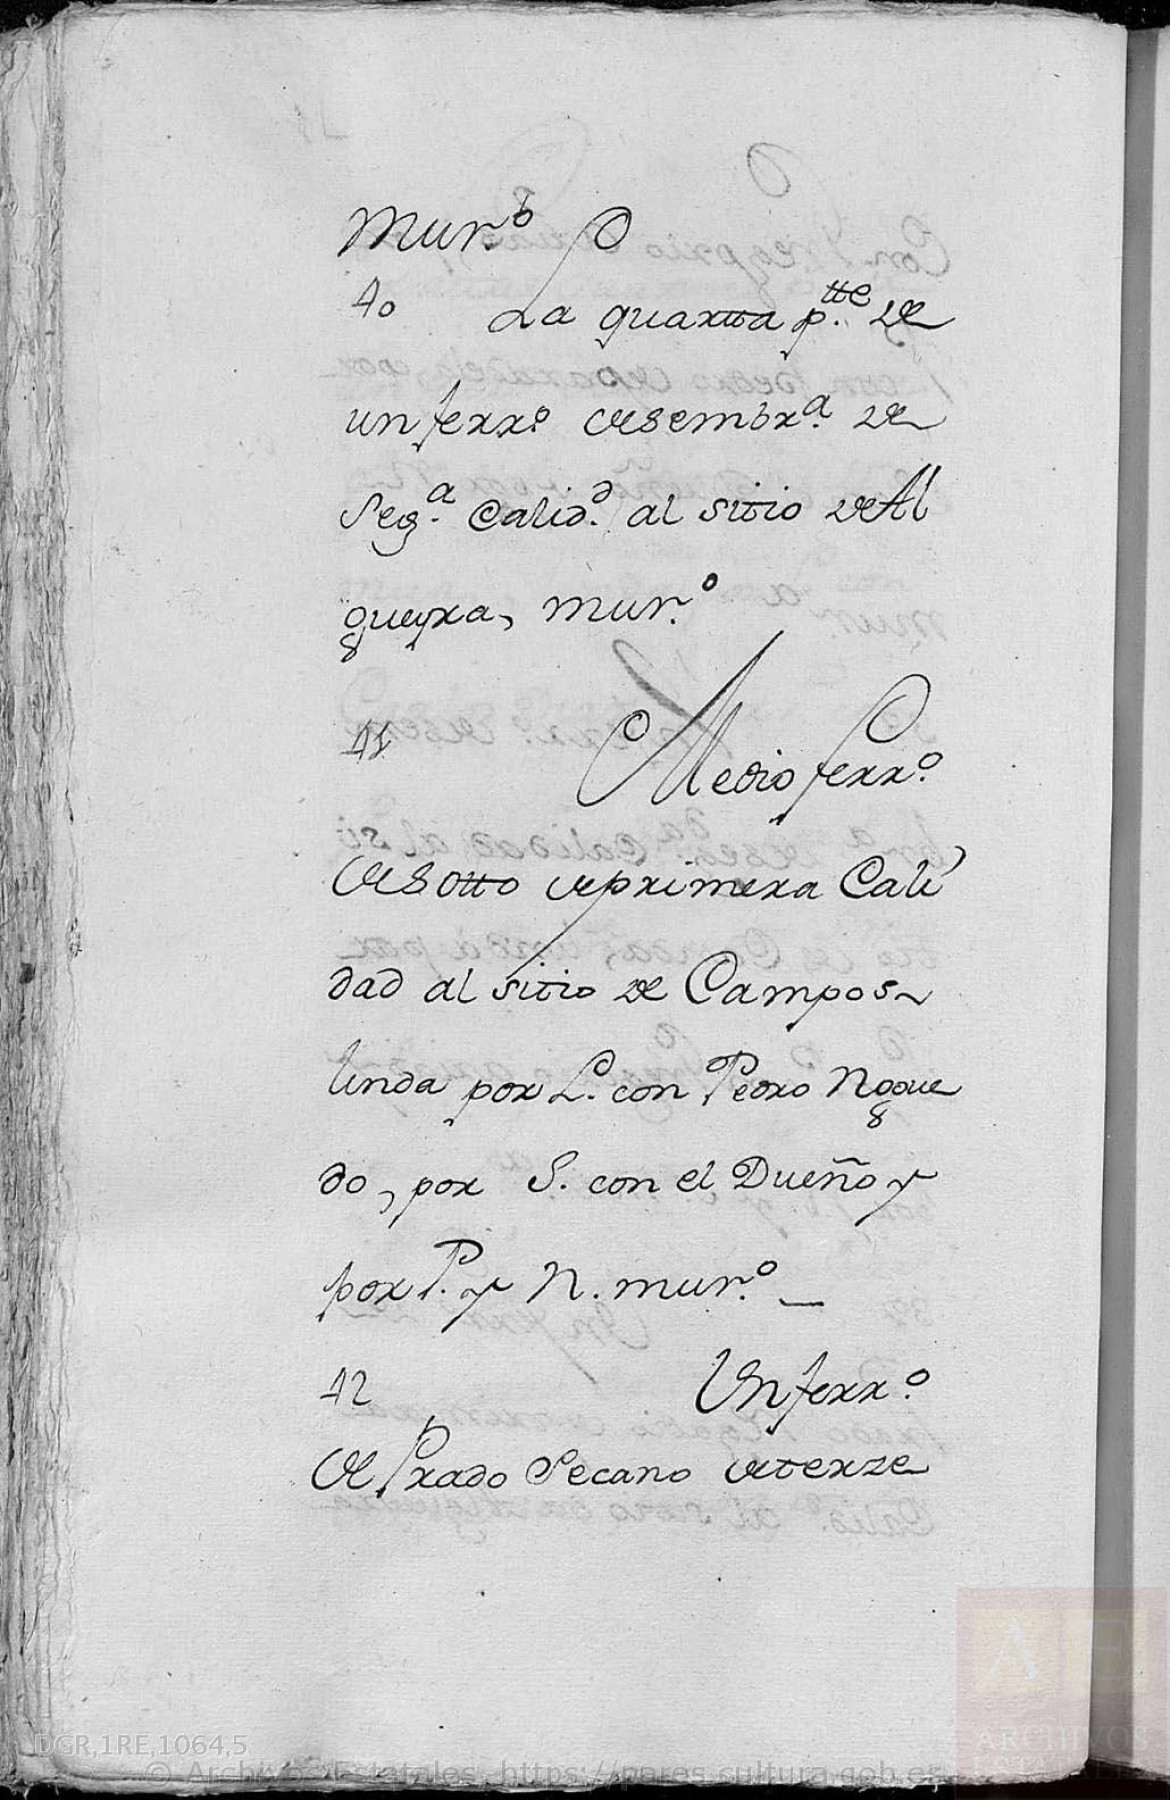 Mur.º
40 La quartta p.tte de
un ferr.º de sembr.ª de
Seg.ª Calid.d al sitio de Al
gueyra, mur.º
41 Medio ferr.º
de Sotto de primera Cali
dad al sitio de Campos
linda por L. con Pedro Nogue
do, por S. con el Dueño y
por P. y N. mur.º
42 Un ferr.º
de Prado Secano de terze
DGR,1RE,1064,5
© Archivos Estatales, https://pares.cultura.gob.es
AE
ARCHIVOS
ESTATALES